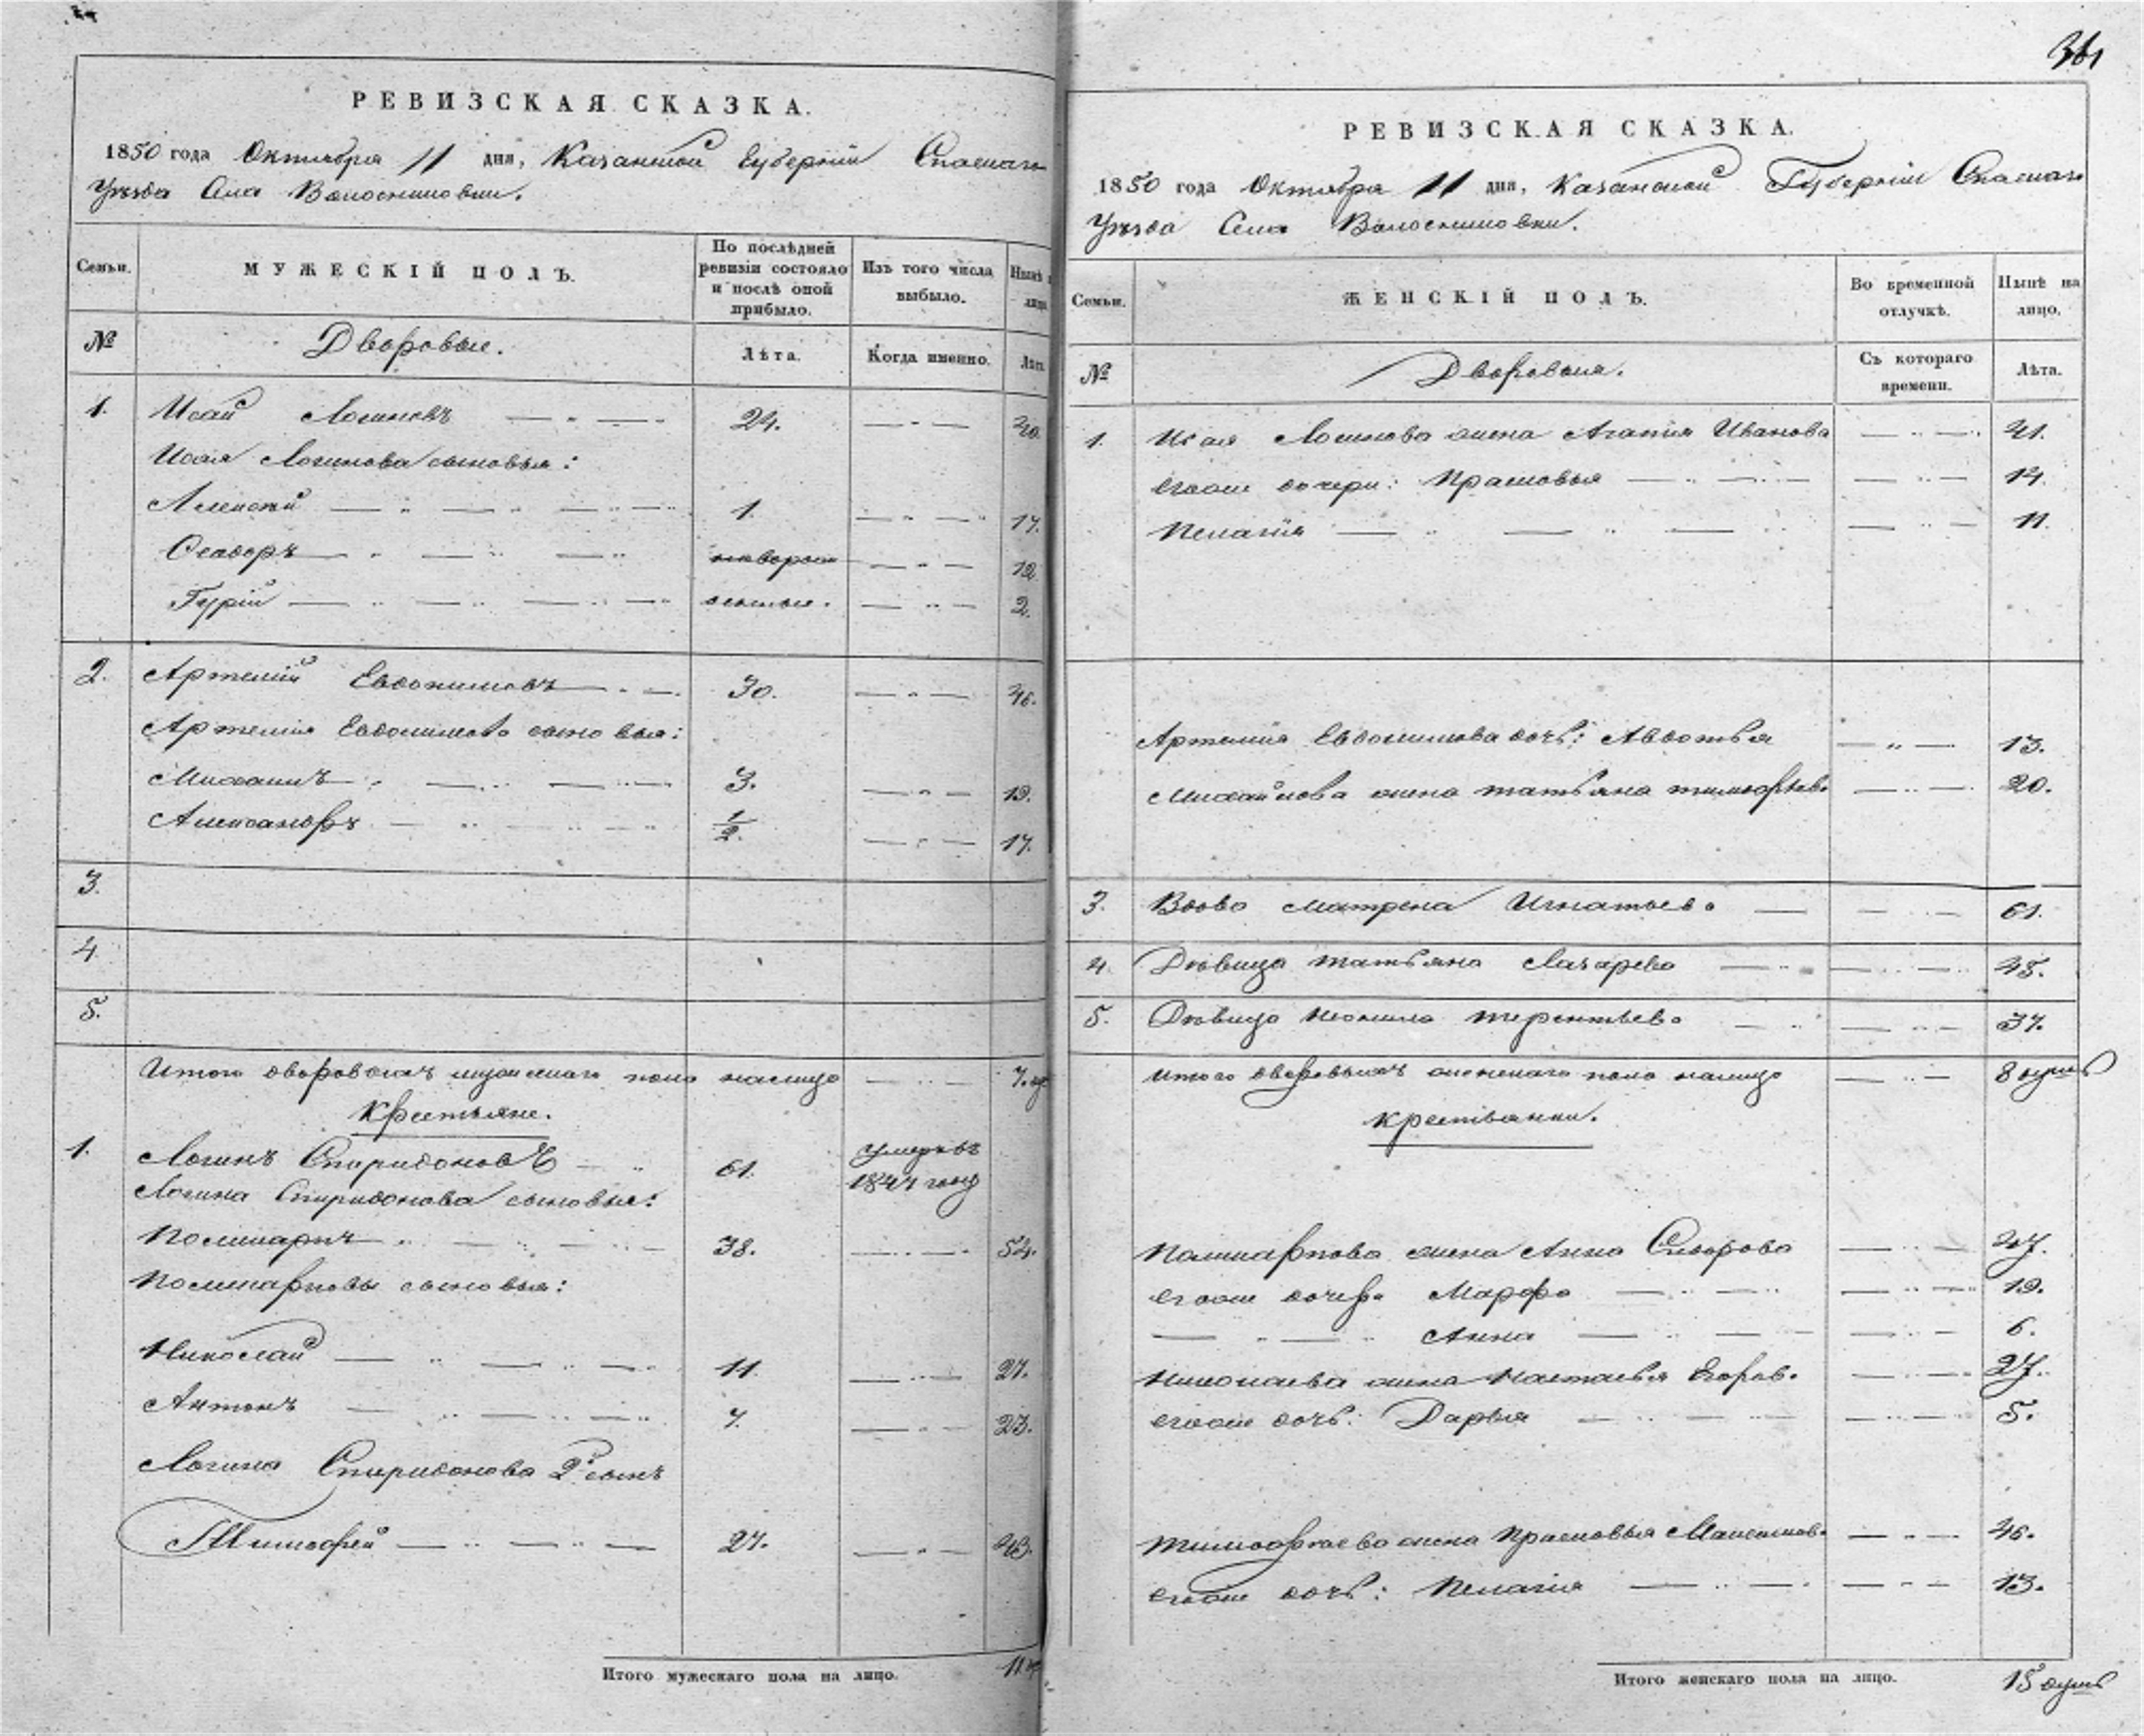 361
РЕВИЗСКАЯ СКАЗКА.
1850 года Октября 11 дня, Казанской Губернии Спаскаго
Уезда Села Волосниковки.
Семьи.
МУЖЕСКІЙ ПОЛЪ.
По послѣдней ревизіи состояло и послѣ оной прибыло.
Изъ того числа выбыло.
Нынѣ
лицо
№
Дворовые.
Лѣта.
Когда именно.
Лѣта
1. Исай Логиновъ 24. 40
Исая Логинова сыновья:
Алексей 1. 17.
Феодоръ новорож 12
Гурій денные. 2.
2. Артемій Евдокимовъ 30. 46.
Артемія Евдокимова сыновья:
Михаилъ 3. 19.
Александръ 1/2. 17.
3.
4
5.
Итого дворовыхъ мужескаго пола налицо 7.
Крестьяне.
1. Логинъ Спиридоновъ 61. умеръ въ 1847 году
Логина Спиридонова сыновья:
Поликарпъ 38. 54.
Поликарповы сыновья:
Николай 11. 27.
Антонъ 7. 23.
Логина Спиридонова 2й сынъ
Тимофей 27. 43.
Итого мужескаго пола на лицо. 11
РЕВИЗСКАЯ СКАЗКА.
1850 года Октября 11 дня, Казанской Губерніи Спаскаго
Уезда Села Волосниковки.
Семьи.
ЖЕНСКІЙ ПОЛЪ.
Во временной отлучкѣ.
Нынѣ на лицо.
№
Дворовыя.
Съ котораго времени.
Лѣта.
1. Исая Логинова жена Агапія Иванова 41.
Егоже дочери: Прасковья 14.
Пелагія 11.
Артемія Евдокимова дочь: Авдотья 13.
Михайлова жена Татьяна Тимофеева 20.
3. Вдова Матрена Игнатьева 61.
4. Дѣвица Татьяна Лазарева 45.
5. Дѣвица Неонила Терентьева 37.
Итого дворовыхъ женскаго пола налицо 8 душъ
Крестьянки.
Поликарпова жена Анна Сидорова 47.
Егоже дочери Марфа 19.
Анна 6.
Николаева жена Настасья Егоров. 27.
Егоже дочь: Дарья 5.
Тимофеева жена Прасковья Максимов. 46.
Егоже дочь: Пелагія 13.
Итого женскаго пола на лицо. 15 душъ